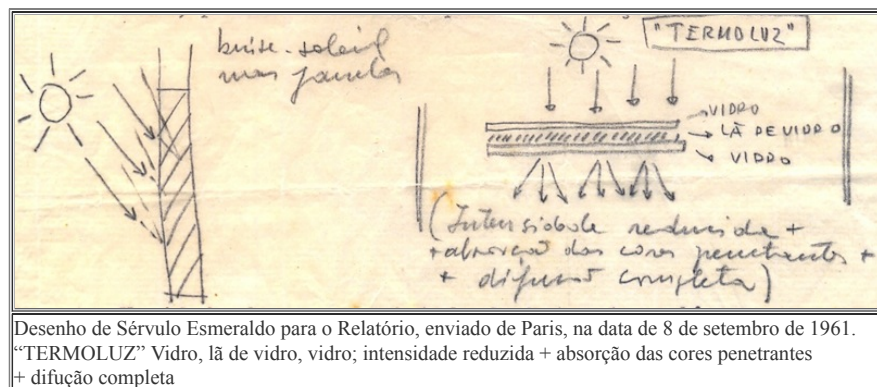 brise-soleil
nas janelas
"TERMOLUZ"
VIDRO
LÃ DE VIDRO
VIDRO
(Intensidade reduzida +
+ absorção das cores penetrantes +
+ difusão completa)
Desenho de Sérvulo Esmeraldo para o Relatório, enviado de Paris, na data de 8 de setembro de 1961.
“TERMOLUZ” Vidro, lã de vidro, vidro; intensidade reduzida + absorção das cores penetrantes
+ difução completa